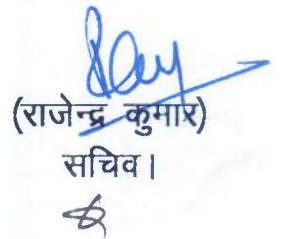 (राजेन्द्र कुमार)
सचिव।